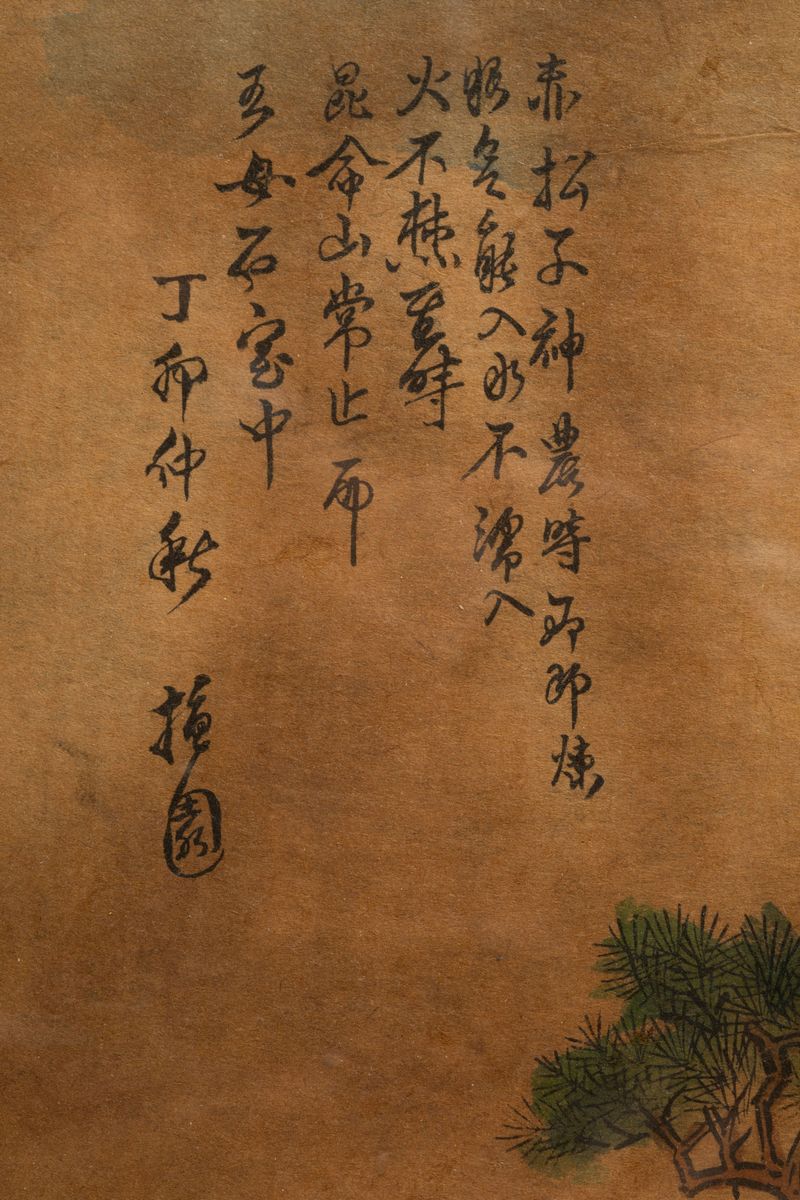 赤松子神農時師煉
服能入水不濡入
火不焚至時
昆侖山常止西
王母石室中
丁卯仲秋 檀園